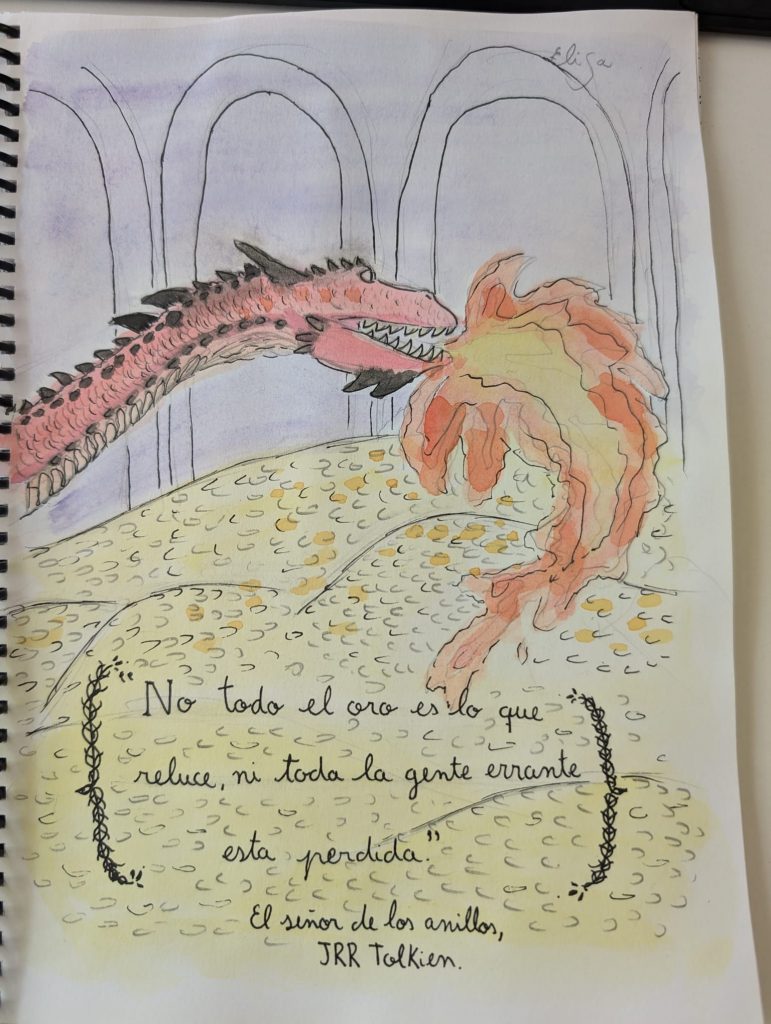 Elisa
"No todo el oro es lo que
reluce, ni toda la gente errante
esta perdida."
El señor de los anillos,
JRR Tolkien.